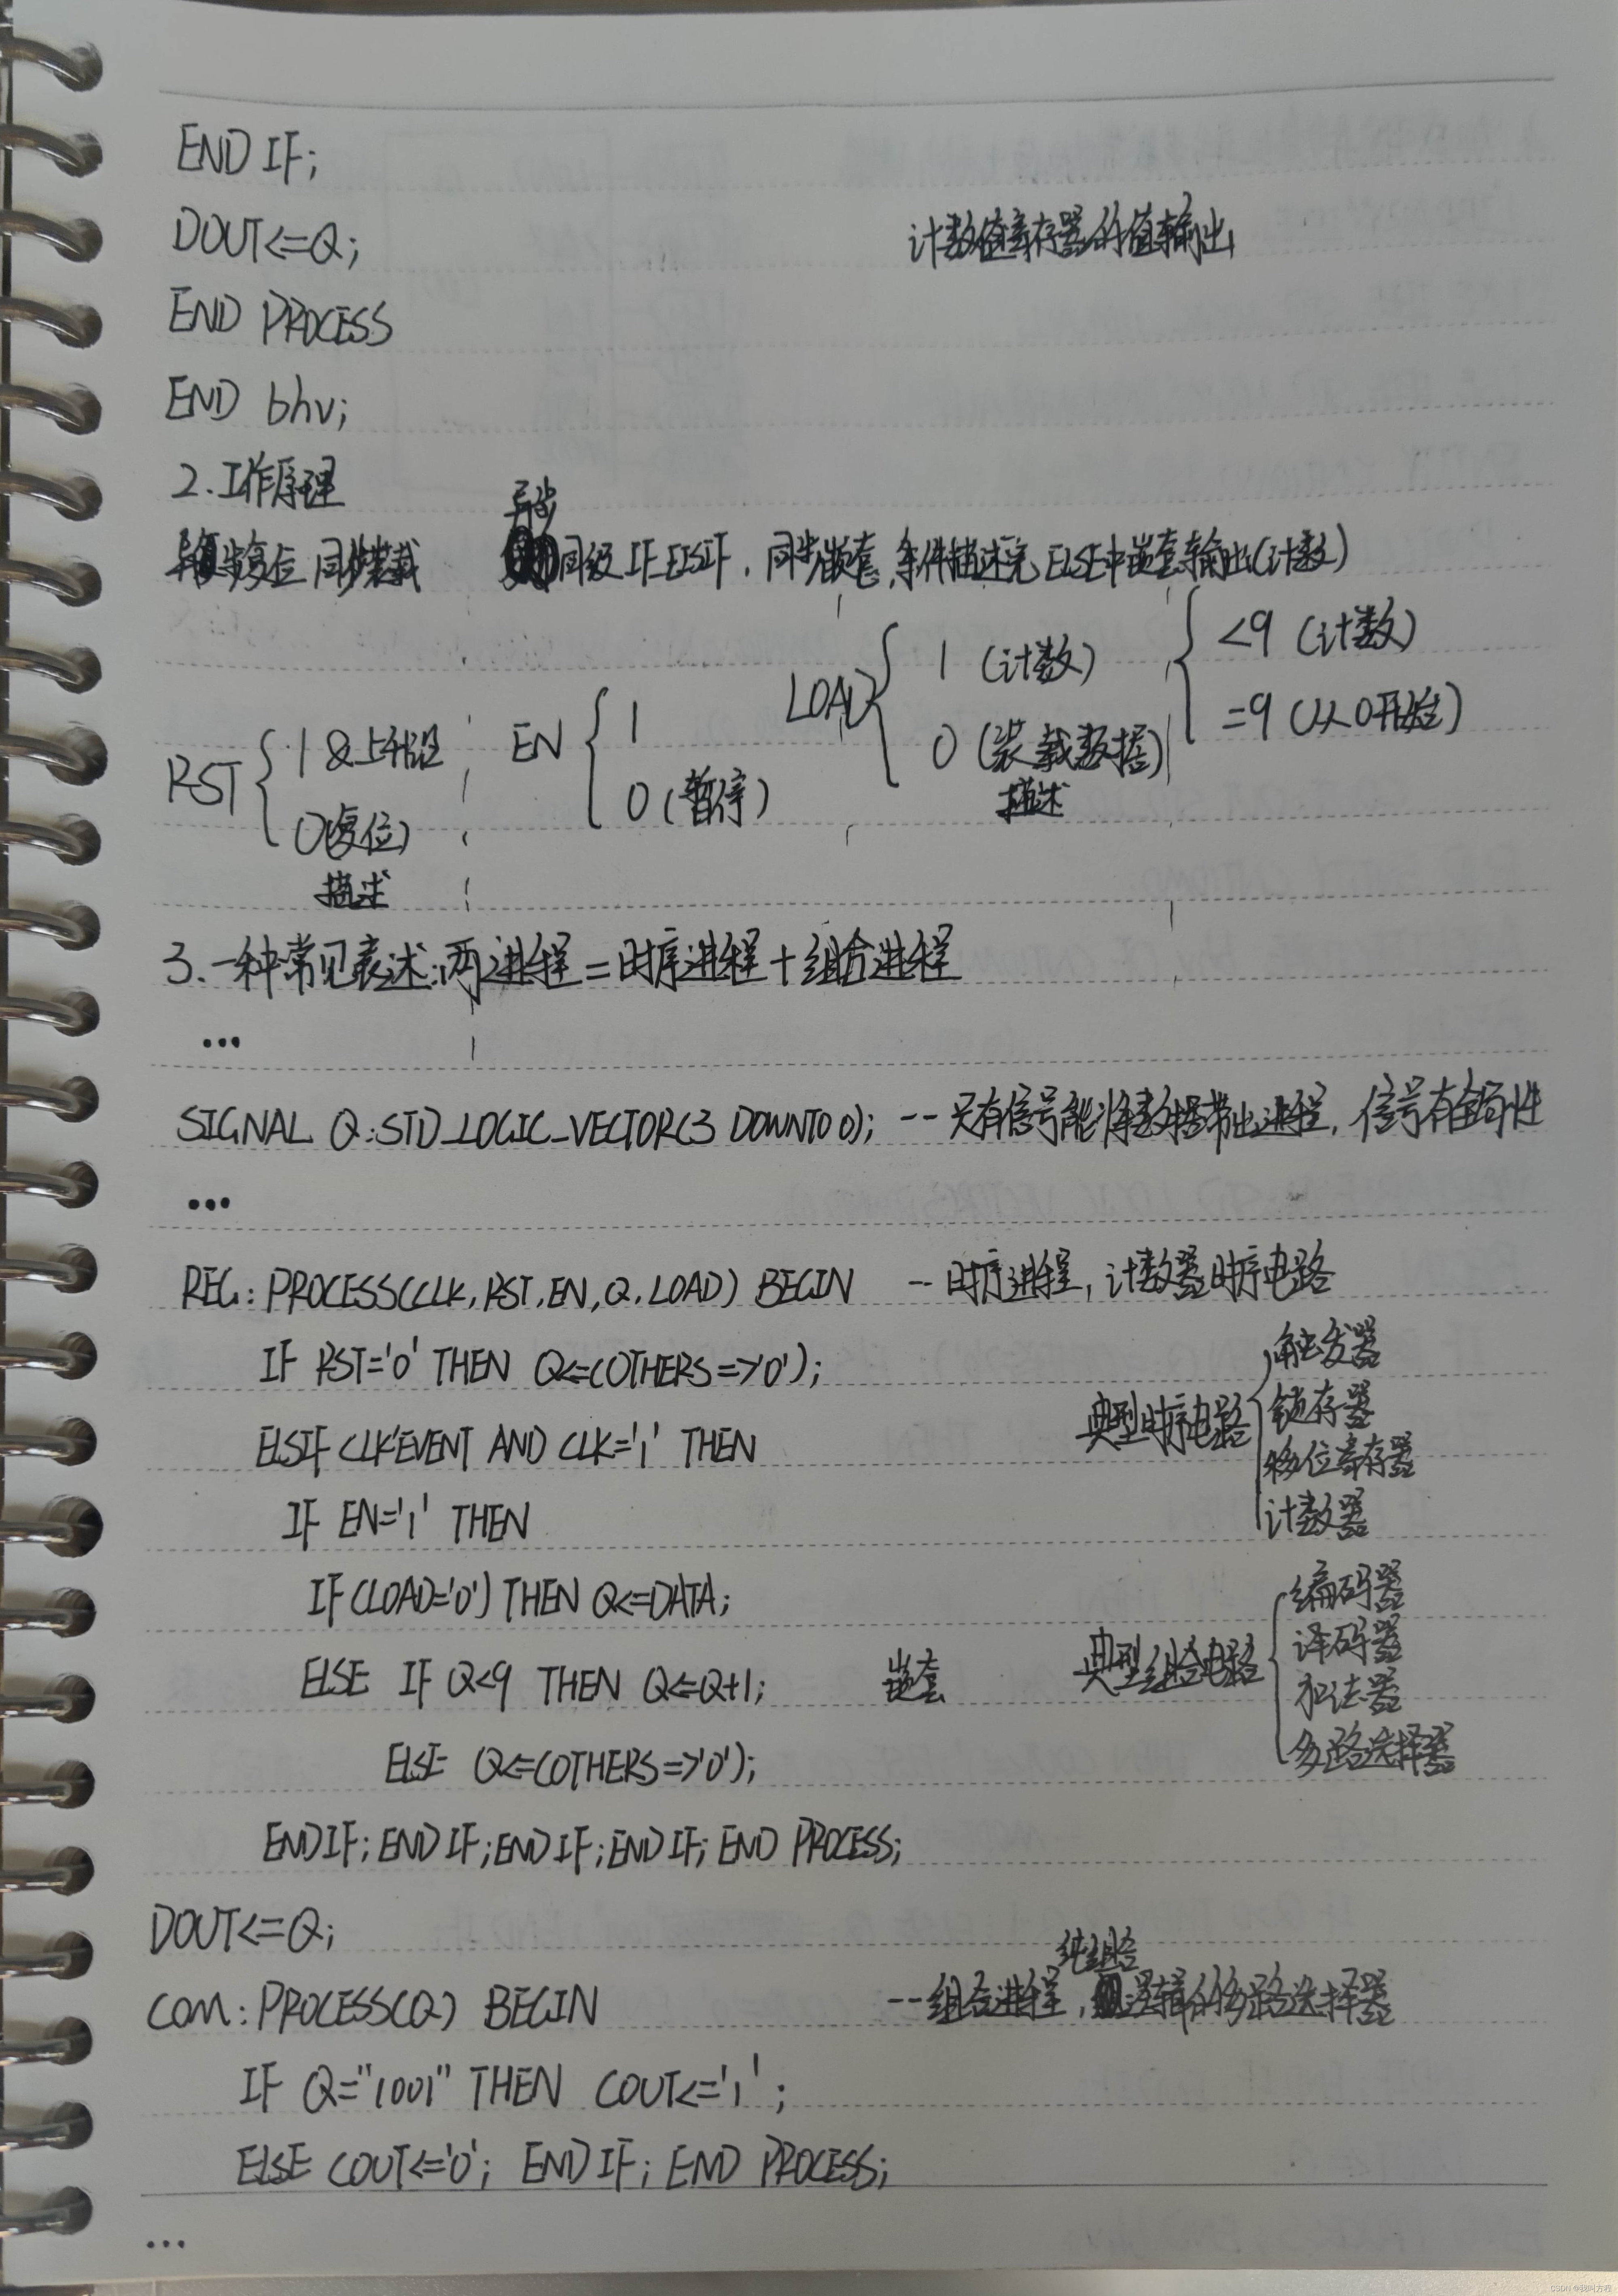 END IF;
DOUT<=Q; 计数值寄存器的值输出
END PROCESS
END bhv;
2.工作原理
异步复位 同步装载 异步同级IF_ELSIF,同步嵌套,条件描述完ELSE中嵌套输出(计数)
RST { 1&上升沿
0(复位)
描述
EN { 1
0(暂停)
LOAD { 1 (计数)
0 (装载数据)
描述
{ <9 (计数)
=9 (从0开始)
3.一种常见表述:两进程=时序进程+组合进程
...
SIGNAL Q:STD_LOGIC_VECTOR(3 DOWNTO 0); --只有信号能将数据带出进程,信号有全局性
...
REG:PROCESS(CLK,RST,EN,Q,LOAD) BEGIN --时序进程,计数器时序电路
IF RST='0' THEN Q<=(OTHERS=>'0');
ELSIF CLK'EVENT AND CLK='1' THEN
IF EN='1' THEN
IF(LOAD='0') THEN Q<=DATA;
ELSE IF Q<9 THEN Q<=Q+1; 嵌套
ELSE Q<=(OTHERS=>'0');
END IF;END IF;END IF;END IF;END PROCESS;
典型时序电路 { 触发器
锁存器
移位寄存器
计数器
典型组合电路 { 编码器
译码器
加法器
多路选择器
DOUT<=Q;
COM:PROCESS(Q) BEGIN --组合进程,纯组合逻辑的多路选择器
IF Q="1001" THEN COUT<='1';
ELSE COUT<='0'; END IF; END PROCESS;
...